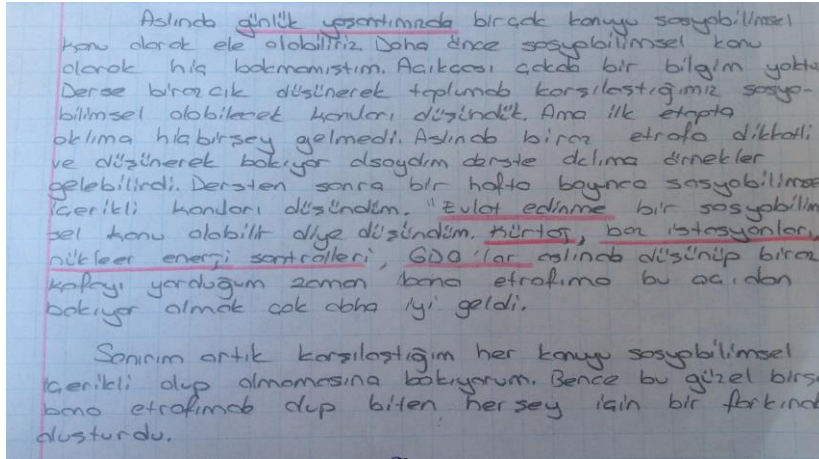 Aslında günlük yaşantımızda birçok konuyu sosyobilimsel
konu olarak ele alabiliriz. Daha önce sosyobilimsel konu
olarak hiç bakmamıştım. Açıkçası çokda bir bilgim yoktu
Derse birazcık düşünerek toplumda karşılaştığımız sosyo-
bilimsel olabilecek konuları düşündük. Ama ilk etapta
aklıma hiçbirşey gelmedi. Aslında biraz etrafa dikkatli
ve düşünerek bakıyor olsaydım derste aklıma örnekler
gelebilirdi. Dersten sonra bir hafta boyunca sosyobilimse
içerikli konuları düşündüm. "Evlat edinme bir sosyobilim
sel konu olabilir diye düşündüm. Kürtaj, baz istasyonları,
nükleer enerji santralleri, GDO'lar aslında düşünüp biraz
kafayı yorduğum zaman bana etrafıma bu açıdan
bakıyor olmak çok daha iyi geldi.
Sanırım artık karşılaştığım her konuyu sosyobilimsel
içerikli olup olmamasına bakıyorum. Bence bu güzel birşe
bana etrafımda olup biten herşey için bir farkında
oluşturdu.